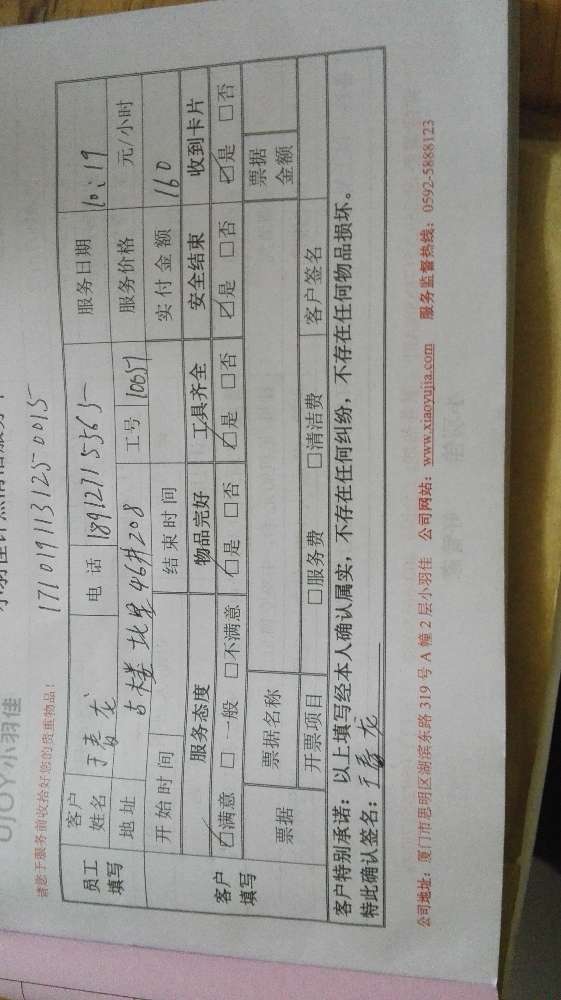 UJOY小羽佳
请您于服务前收拾好您的贵重物品!
17101911131250015
员工填写 客户姓名 于春龙 电话 18912715565 服务日期 10:19
地址 工号 10657 服务价格 元/小时
客户填写 开始时间 结束时间 实付金额 160
服务态度 物品完好 工具齐全 安全结束 收到卡片
☑满意 □一般 □不满意 ☑是 □否 ☑是 □否 ☑是 □否 ☑是 □否
票据 票据名称 票据金额
开票项目 □服务费 □清洁费 客户签名
客户特别承诺:以上填写经本人确认属实,不存在任何纠纷,不存在任何物品损坏。
特此确认签名:于春龙
公司地址:厦门市思明区湖滨东路 319 号 A 幢 2 层小羽佳 公司网站:www.xiaoyujia.com 服务监督热线:0592-5888123